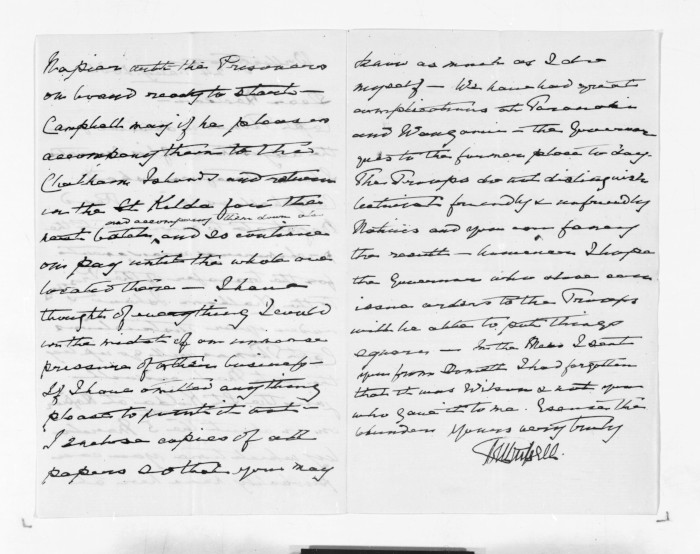 Napier with the Prisoners
on board ready to start -
Campbell may if he pleases
accompany them to the
Chatham Islands and return
in the St Kilda for the
and accompany them down also
next batch, and so continue
on pay until the whole are
located there - I have
thought of everything I could
in the midst of an immense
pressure of other business -
If I have omitted anything
please to point it out -
I enclose copies of all
papers so that you may
know as much as I do
myself - We have had great
complications at Taranaki
and Wanganui - the Governor
goes to the former place to day.
The Troops do not distinguish
between friendly & unfriendly
Natives and you can fancy
the result - However I hope
the Governor who alone can
issue orders to the Troops
will be able to put things
square - In the Mem I sent
you from I had forgotten
that it was Wilson & not you
who gave it to me. Excuse the
blunder Yours very truly